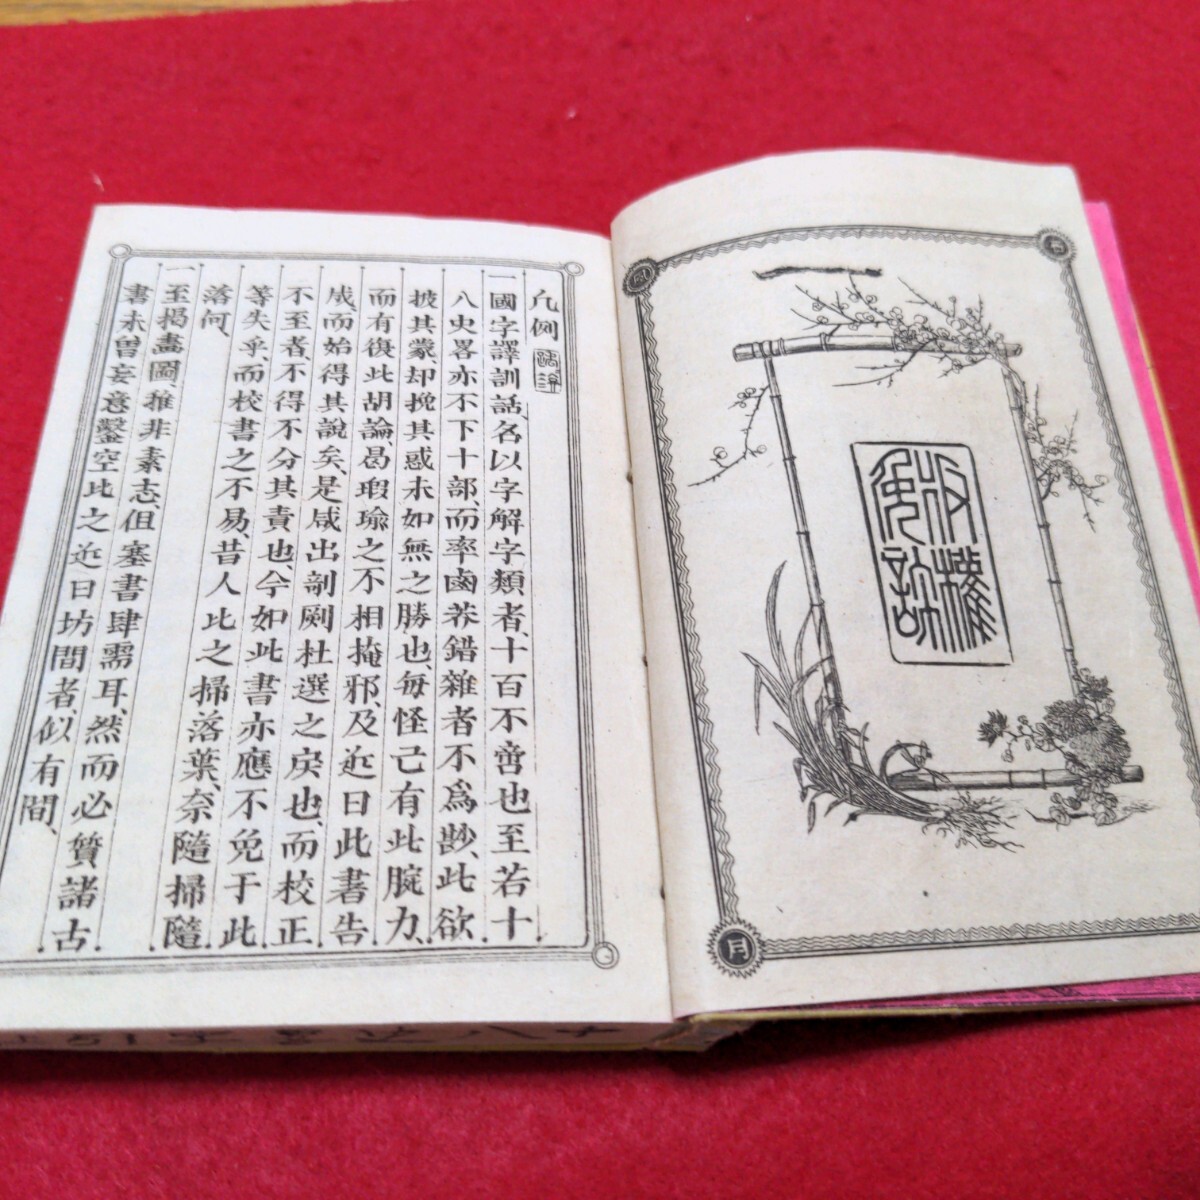 版權免許
月
凡例
一國字譯訓話、名以字解字類者、十百不啻也至若十
八史畧亦不下十部、而率鹵莽錯雜者不爲尠、此欲
披其蒙、却挽其惑未如無之勝也、每怪己有此腕力、
而有復此胡論、曷瑕瑜之不相掩邪、及近日此書告
成、而始得其說矣、是咸出剞劂杜選之戾也、而校正
不至者、不得不分其責也、今如此書亦應不免于此
等失乎、而校書之不易、昔人比之掃落葉、奈隨掃隨
落何、
一至揭畵圖、雖非素志、但塞書肆需耳、然而必質諸古
書未曾妄意鑿空比之近日坊間者、似有間、
十八史畧字引